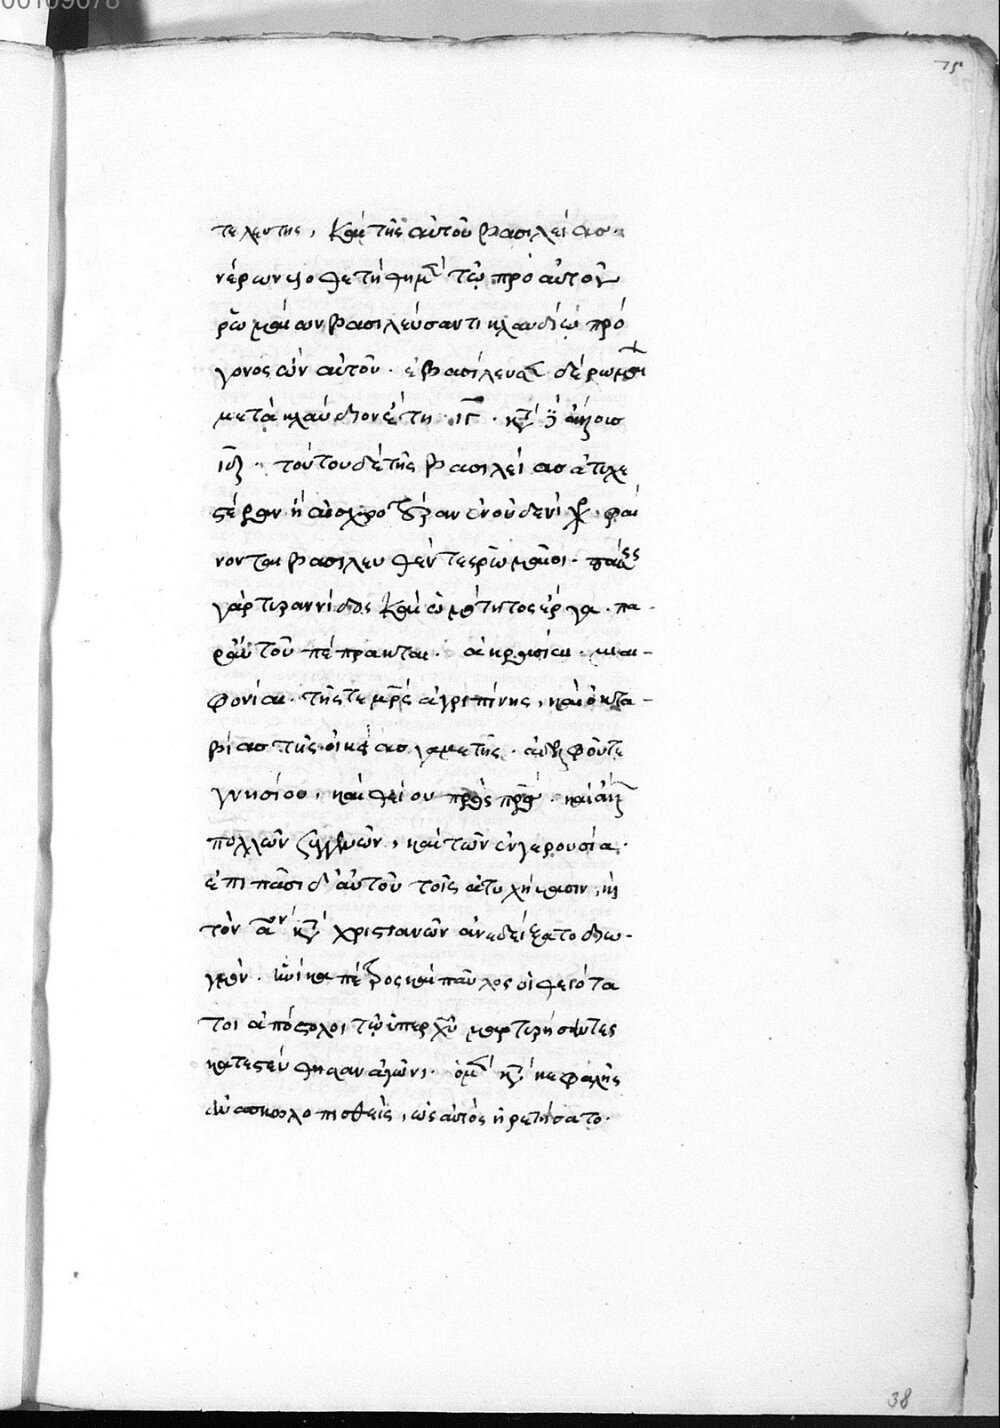 00109078
75
τελευτῆς, καὶ τῆς αὐτοῦ βασιλείας.
νέρων ἐτέθη τῷ πρὸ αὐτοῦ
ῥωμαίων βασιλεύσαντι κλαυδίῳ πρό
γονος ὢν αὐτοῦ. ἐβασίλευσε δὲ ῥωμαί
μετὰ κλαύδιον ἔτη ιγ
τούτου δὲ τῆς βασιλείας ἀτυχε
στέραν ἢ αἰσχροτέραν ἐν οὐδενὶ φαί
νονται βασιλευθέντες ῥωμαῖοι. πάσης
γὰρ τυραννίδος καὶ ὠμότητος ἔργα πα
ρ' αὐτοῦ πέπρακται. μιαι
φονίαι. τῆς τε μρς ἀγριπίνης, καὶ ὀκτα
βίας τῆς οἰκείας γαμετῆς. ἀδελφοῦ τε
γνησίου, καὶ θείου πρὸς πρς. καὶ
πολλῶν συγγενῶν, καὶ τῶν ἐν γερουσίᾳ.
ἐπὶ πᾶσι δ' αὐτοῦ τοῖς ἀτυχήμασιν, καὶ
τὸν αον κτ χριστιανῶν ἀνεδείξατο διω
γμόν. ἡνίκα πέτρος καὶ παῦλος οἱ θειότα
τοι ἀπόστολοι τῷ ὑπὲρ χῦ μαρτυρήσαντες
κατεστεύθησαν ἀγῶνι. ὁ μὲν κτ κεφαλῆς
ἀνασκολοπισθεὶς, ὡς αὐτὸς ᾐρετήσατο.
38